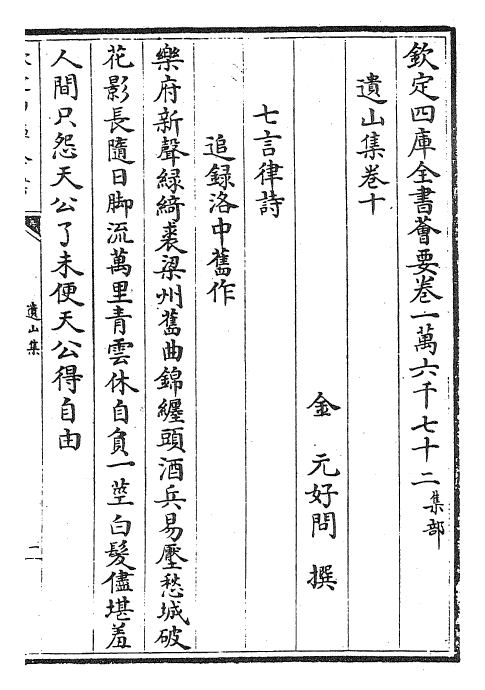 欽定四庫全書薈要卷一萬六千七十二集部
遺山集卷十
金 元好問 撰
七言律詩
追録洛中舊作
樂府新聲緑綺裘梁州舊曲錦纏頭酒兵易壓愁城破
花影長隨日脚流萬里青雲休自負一莖白髮儘堪羞
人間只怨天公了未便天公得自由
遺山集